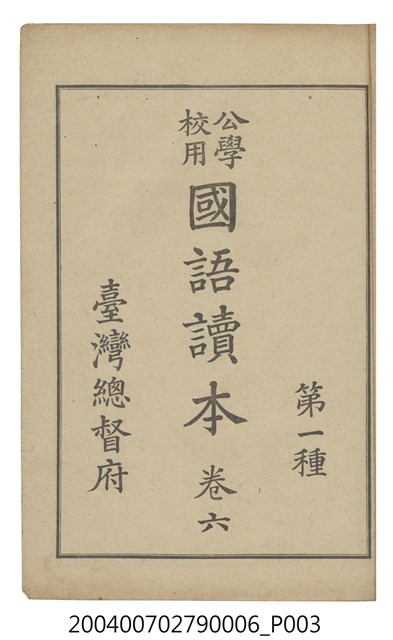 第一種
公學校用
國語讀本 卷六
臺灣總督府
200400702790006_P003